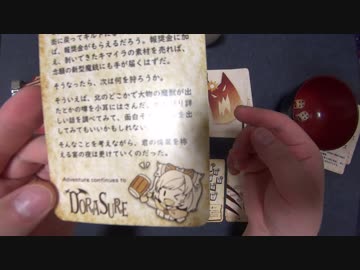 街に戻ってギルドに
ば、報奨金がもらえるだろう。報奨金に加
え、剥いできたキマイラの素材を売れば、
念願の新型魔銃にも手が届くはずだ。
そうなったら、次は何を狩ろうか。
そういえば、北のどこかで大物の魔獣が出
たとかの噂を小耳にはさんだ。
しい話を調べてみて、面白そ
してみてもいいかもしれない
そんなことを考えながら、君の偉業を称
える宴の夜は更けていくのだった。
Adventure continues to
DORASURE